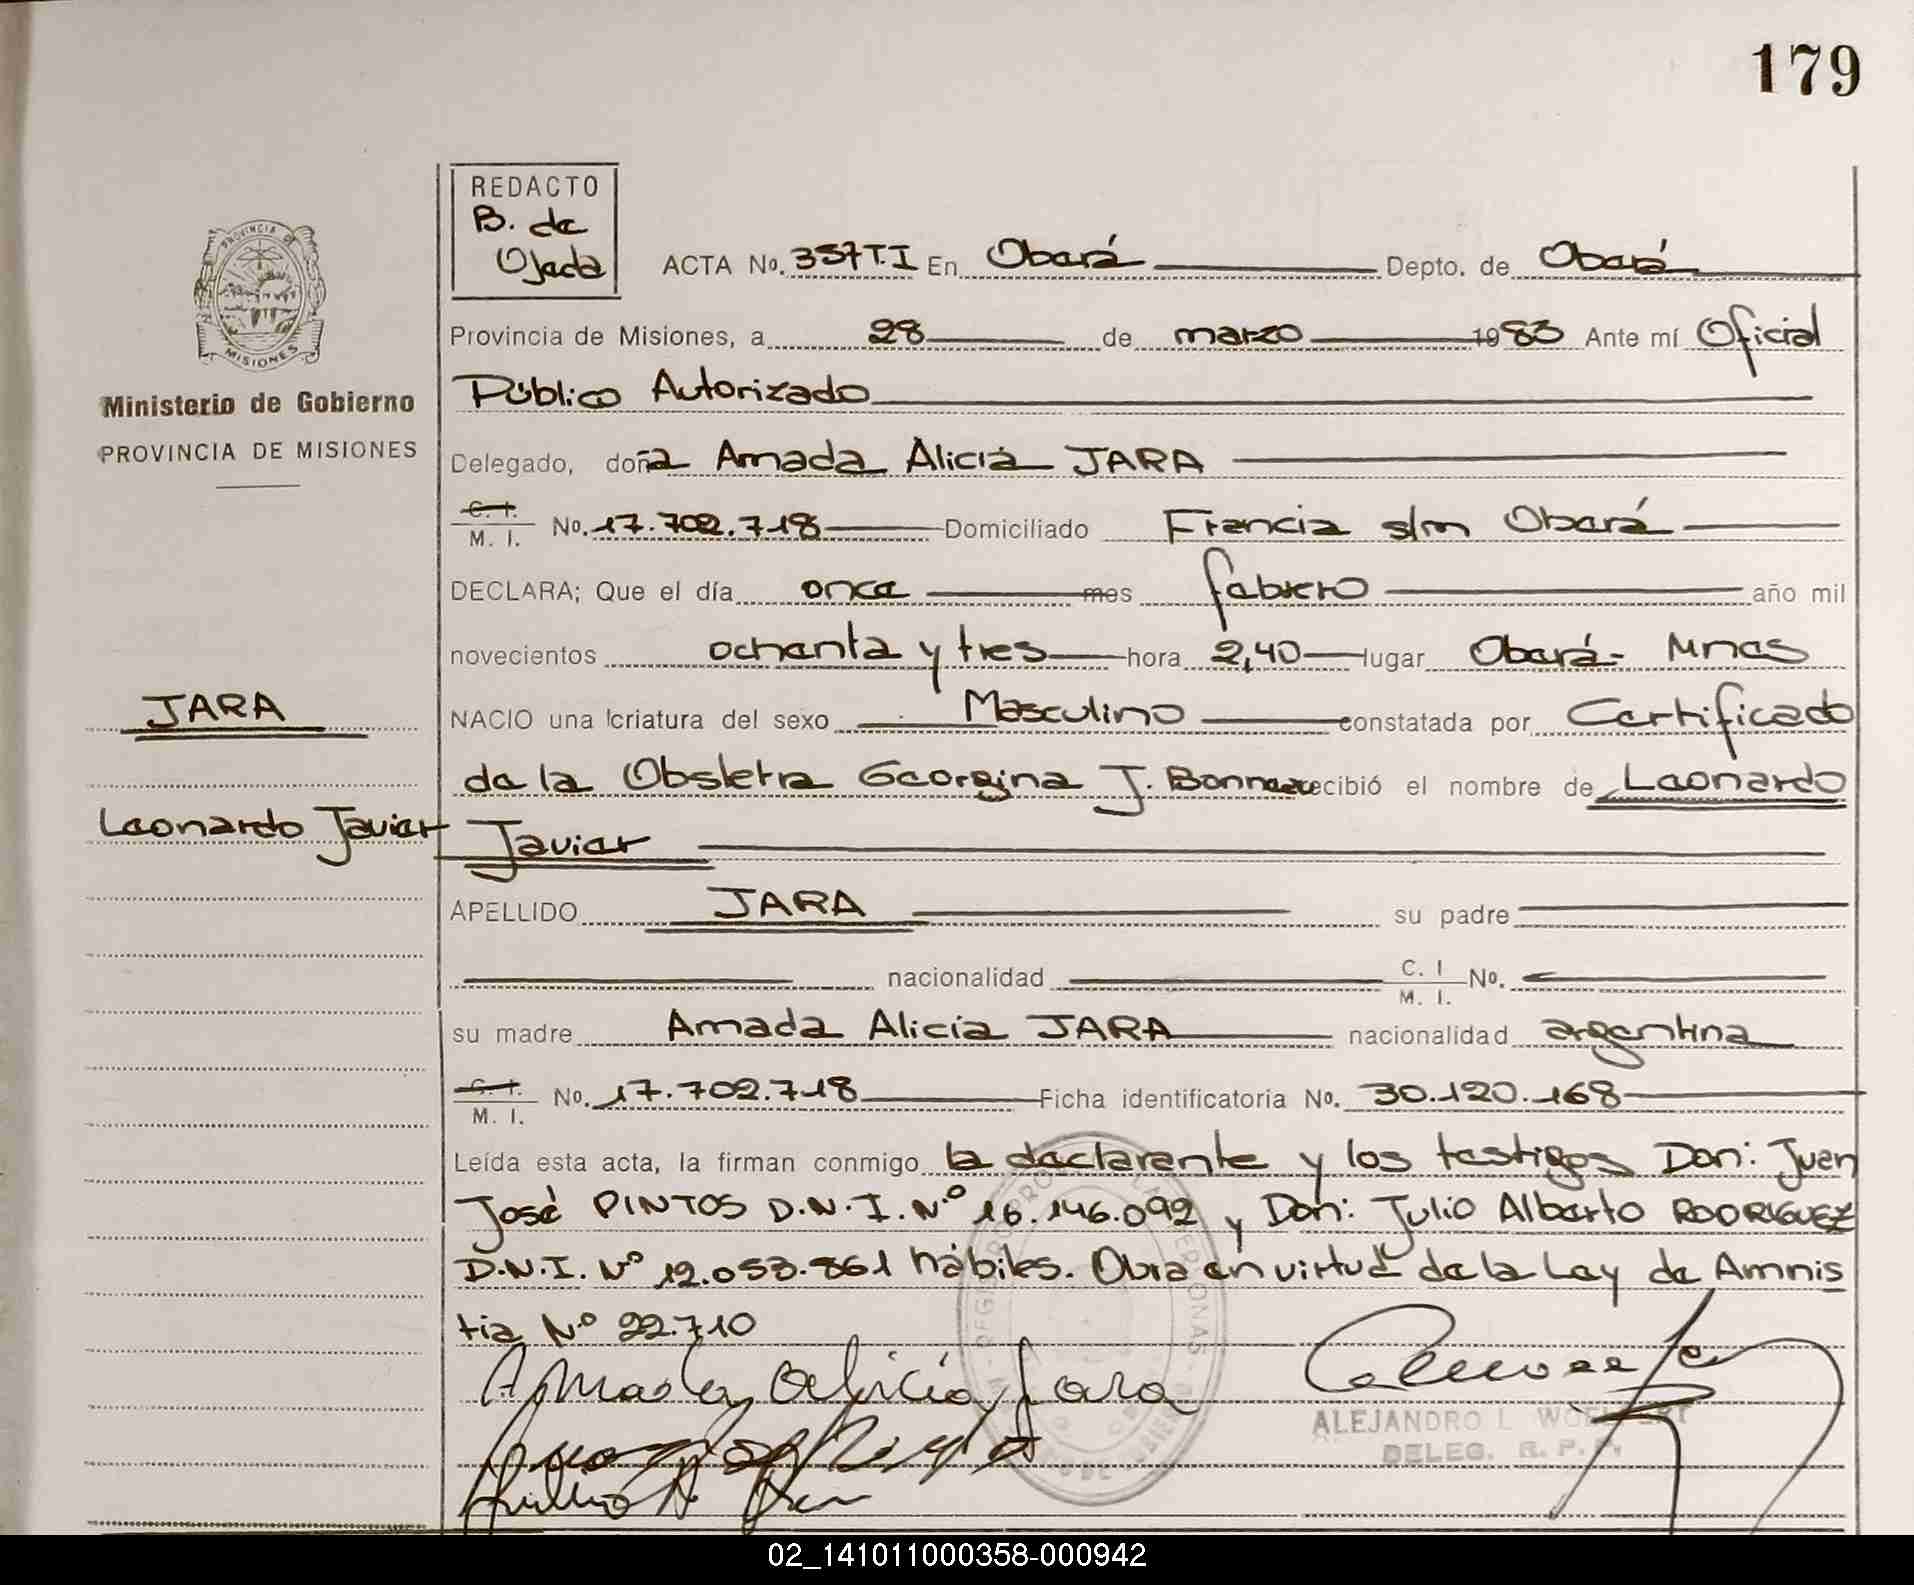 179
REDACTO
B. de
Ojeda
ACTA No. 357 T.I En Oberá Depto. de Oberá
Provincia de Misiones, a 28 de marzo 1983 Ante mí Oficial
Público Autorizado
Delegado, doña Amada Alicia JARA
C. I.
M. I. No. 17.702.718 Domiciliado Francia s/n Oberá
DECLARA; Que el día once mes febrero año mil
novecientos ochenta y tres hora 2,40 lugar Oberá- Mnes
NACIO una criatura del sexo Masculino constatada por Certificado
de la Obstetra Georgina J. recibió el nombre de Leonardo
Javier
APELLIDO JARA su padre
nacionalidad C. I
M. I. No.
su madre Amada Alicia JARA nacionalidad argentina
C. I.
M. I. No. 17.702.718 Ficha identificatoria No. 30.120.168
Leída esta acta, la firman conmigo la declarante y los testigos Don: Juan
José PINTOS D.N.I. Nº 16.146.092 y Don: Julio Alberto RODRIGUEZ
D.N.I. Nº 12.053.861 hábiles. Obra en virtud de la Ley de Amnis
tia Nº 22.710
Amada Alicia Jara
ALEJANDRO L
DELEG. R. P. P.
PROVINCIA DE
MISIONES
Ministerio de Gobierno
PROVINCIA DE MISIONES
JARA
Leonardo Javier
02_141011000358-000942